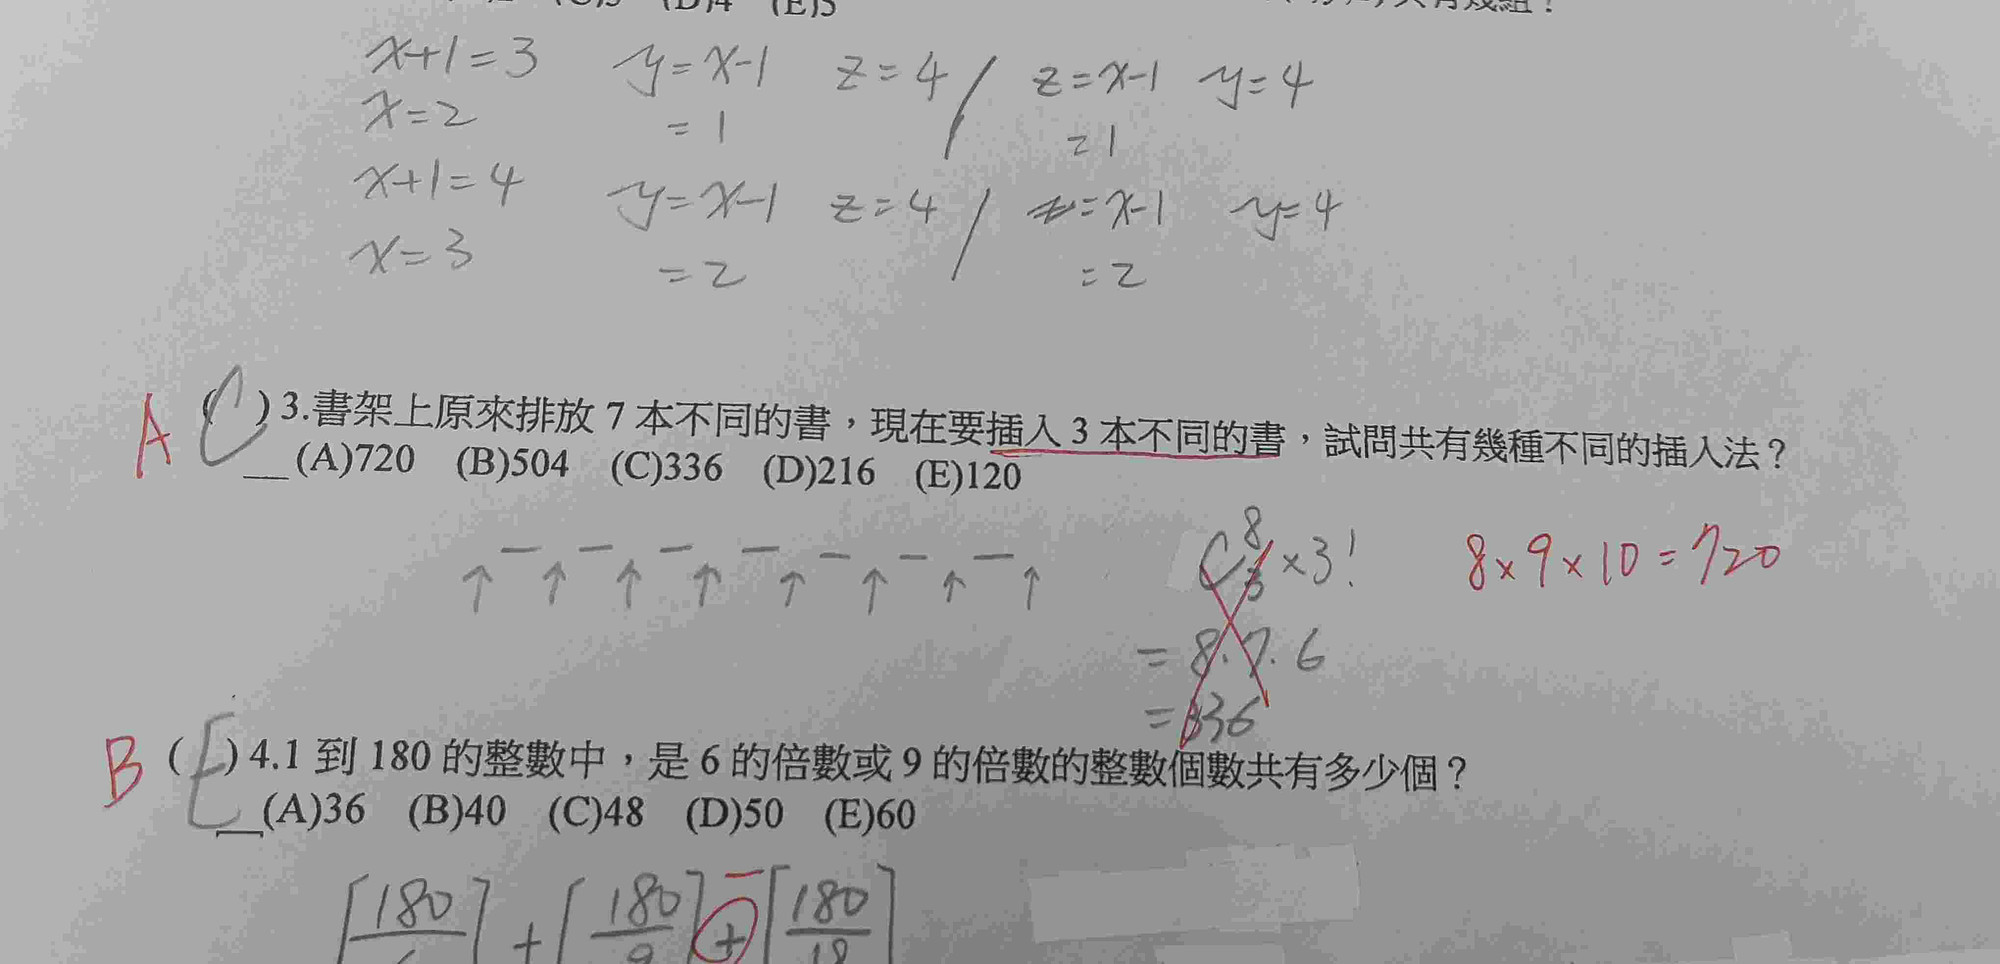 (D)4 (E)5
x+1=3 y=x-1 z=4 / z=x-1 y=4
x=2 =1 =1
x+1=4 y=x-1 z=4 / z=x-1 y=4
x=3 =2 =2
A (C) 3.書架上原來排放 7 本不同的書，現在要插入 3 本不同的書，試問共有幾種不同的插入法？
(A)720 (B)504 (C)336 (D)216 (E)120
C⁸₃×3! 8×9×10=720
=8.7.6
=336
B (E) 4.1 到 180 的整數中，是 6 的倍數或 9 的倍數的整數個數共有多少個？
(A)36 (B)40 (C)48 (D)50 (E)60
−
[180/6] + [180/9] + [180/18]